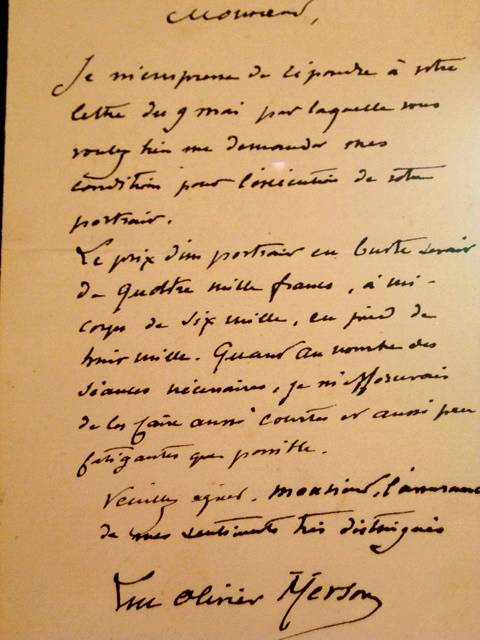 Monsieur,
Je m'empresse de répondre à votre
lettre du 9 mai par laquelle vous
voulez bien me demander mes
conditions pour l'exécution de votre
portrait.
Le prix d'un portrait en buste serait
de quatre mille francs, à mi-
corps de six mille, en pied de
huit mille. Quand au nombre des
séances nécessaires, je m'efforcerais
de les faire aussi courtes et aussi peu
fatigantes que possible.
Veuillez agréer, monsieur, l'assurance
de mes sentiments très distingués
Luc Olivier Merson